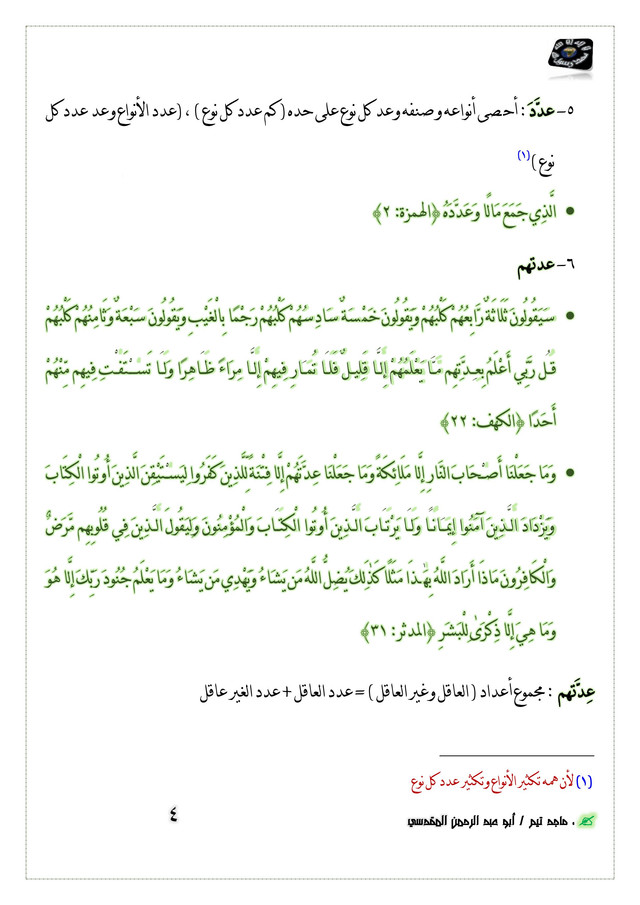 ٥- عدَّدَ : أحصى أنواعه وصنفه وعد كل نوع على حده (كم عدد كل نوع ) ، (عدد الأنواع وعد عدد كل
نوع ) (١)
• الَّذِي جَمَعَ مَالًا وَعَدَّدَهُ ﴿الهمزة: ٢﴾
٦- عدتهم
• سَيَقُولُونَ ثَلَاثَةٌ رَّابِعُهُمْ كَلْبُهُمْ وَيَقُولُونَ خَمْسَةٌ سَادِسُهُمْ كَلْبُهُمْ رَجْمًا بِالْغَيْبِ وَيَقُولُونَ سَبْعَةٌ وَثَامِنُهُمْ كَلْبُهُمْ
قُل رَّبِّي أَعْلَمُ بِعِدَّتِهِم مَّا يَعْلَمُهُمْ إِلَّا قَلِيلٌ فَلَا تُمَارِ فِيهِمْ إِلَّا مِرَاءً ظَاهِرًا وَلَا تَسْتَفْتِ فِيهِم مِّنْهُمْ
أَحَدًا ﴿الكهف: ٢٢﴾
• وَمَا جَعَلْنَا أَصْحَابَ النَّارِ إِلَّا مَلَائِكَةً وَمَا جَعَلْنَا عِدَّتَهُمْ إِلَّا فِتْنَةً لِّلَّذِينَ كَفَرُوا لِيَسْتَيْقِنَ الَّذِينَ أُوتُوا الْكِتَابَ
وَيَزْدَادَ الَّذِينَ آمَنُوا إِيمَانًا وَلَا يَرْتَابَ الَّذِينَ أُوتُوا الْكِتَابَ وَالْمُؤْمِنُونَ وَلِيَقُولَ الَّذِينَ فِي قُلُوبِهِم مَّرَضٌ
وَالْكَافِرُونَ مَاذَا أَرَادَ اللَّهُ بِهَٰذَا مَثَلًا كَذَٰلِكَ يُضِلُّ اللَّهُ مَن يَشَاءُ وَيَهْدِي مَن يَشَاءُ وَمَا يَعْلَمُ جُنُودَ رَبِّكَ إِلَّا هُوَ
وَمَا هِيَ إِلَّا ذِكْرَىٰ لِلْبَشَرِ ﴿المدثر: ٣١﴾
عِدَّتهم : مجموع أعداد ( العاقل وغير العاقل ) = عدد العاقل + عدد الغير عاقل
(١) لأن همه تكثير الأنواع وتكثير عدد كل نوع
، ماجد تيم / أبو عبد الرحمن المقدسي
٤